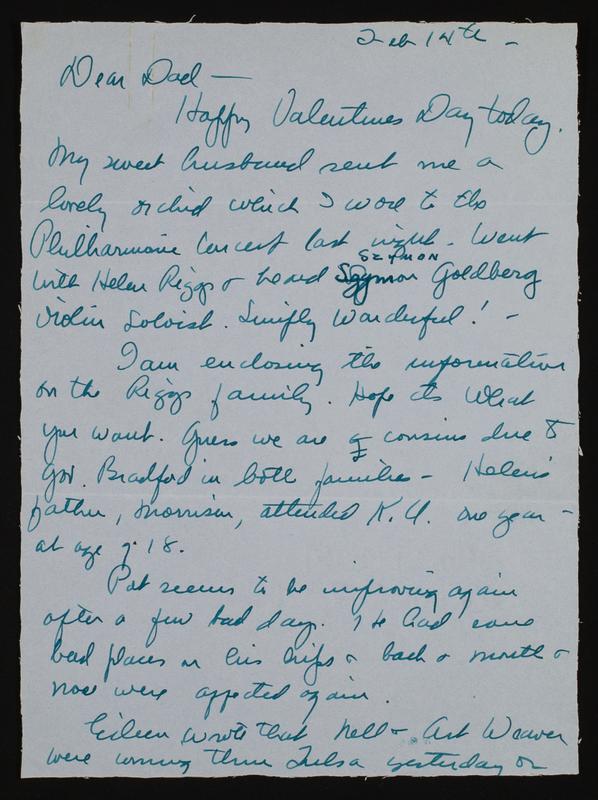 Feb 14th -
Dear Dad —
Happy Valentines Day today.
My sweet husband sent me a
lovely orchid which I wore to the
Philharmonic Concert last night. Went
SZYMON
with Helen Riggs & heard Szymon Goldberg
Violin Soloist. Simply Wonderful! -
I am enclosing the information
on the Riggs family. Hope its what
you want. Guess we are cousins due to
Gov. Bradford in both families - Helen's
father, Morrison, attended K.U. one year -
at age of 18.
Pat seems to be improving again
after a few bad days. He had some
bad places on his hips & back & mouth &
nose were affected again.
Eileen wrote that Nell & Art Weaver
were coming thru Tulsa yesterday on